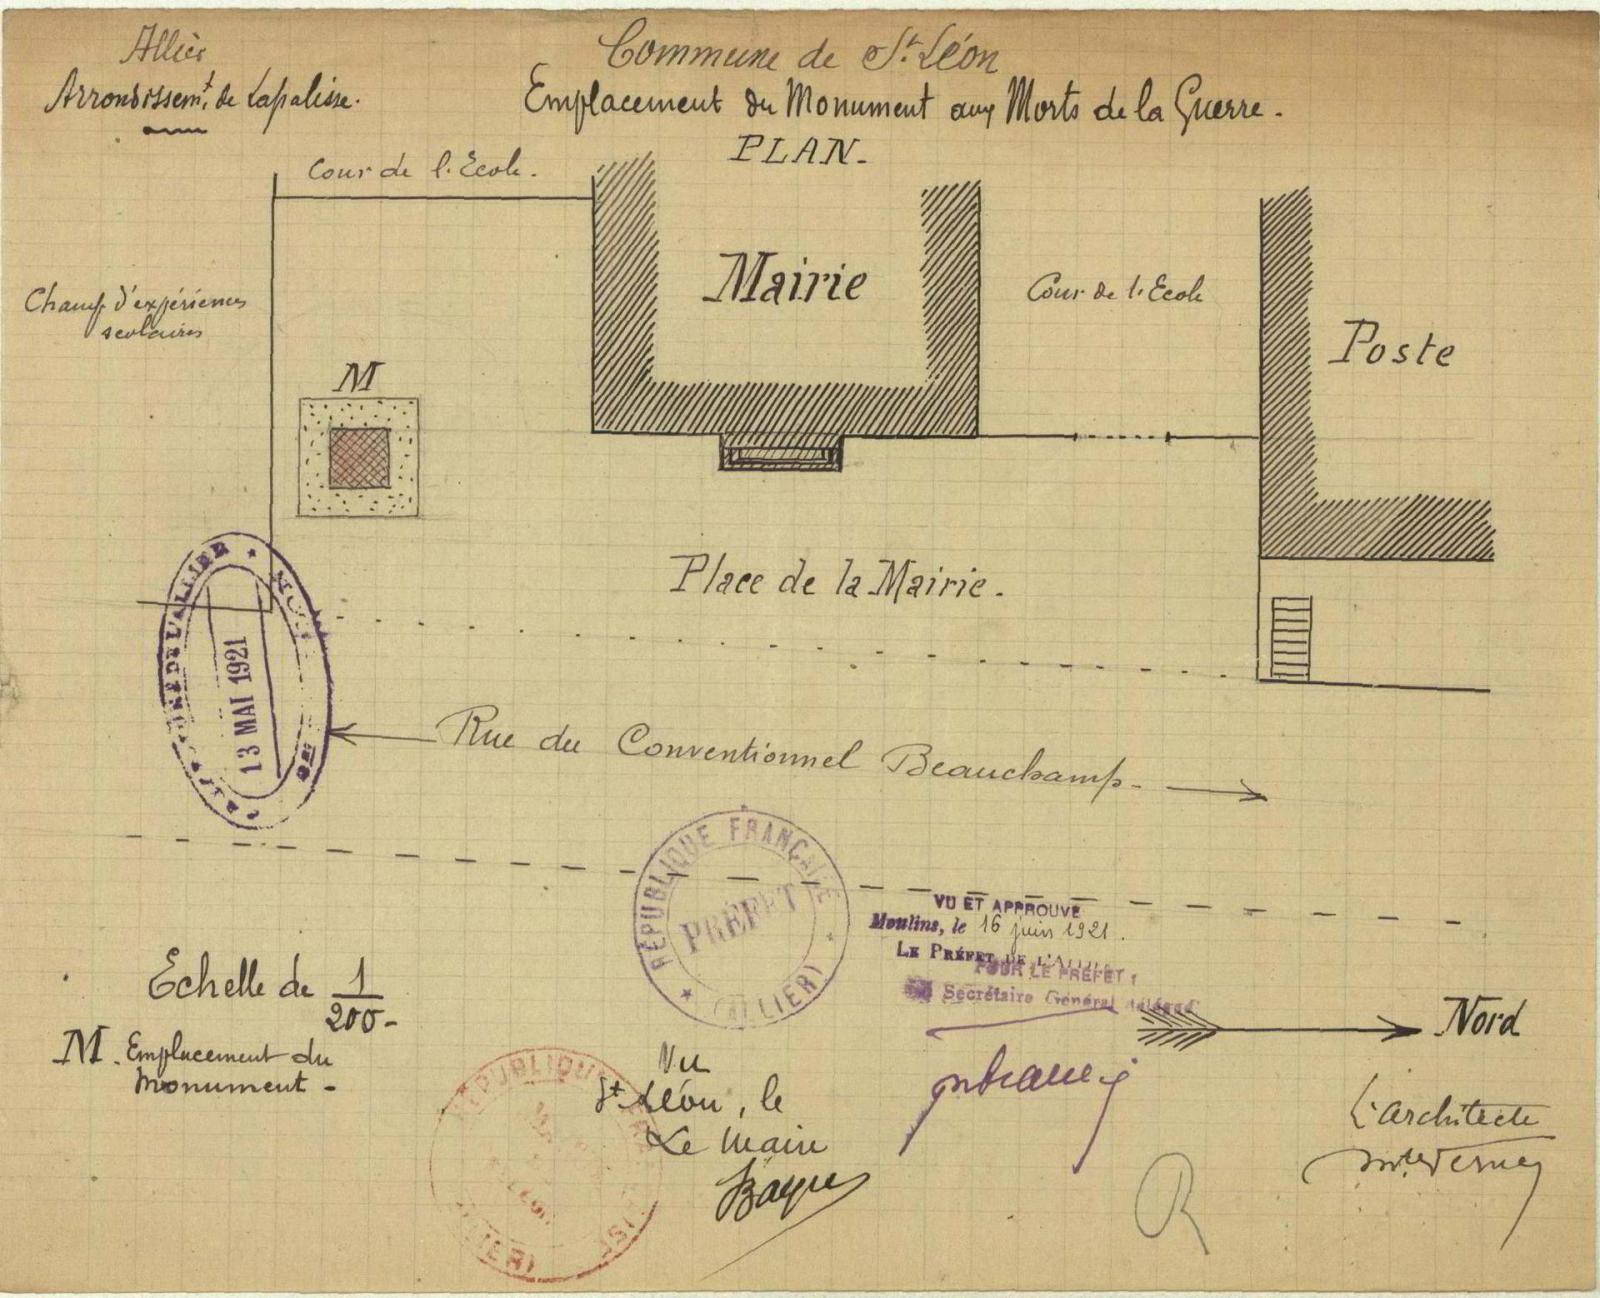 Allier
Arrondissemt. de Lapalisse.
Commune de St. Léon
Emplacement du Monument aux Morts de la Guerre.
PLAN.
Cour de l'Ecole.
Mairie
Cour de l'Ecole
Champ d'expériences
scolaires
Poste
M
Place de la Mairie.
13 MAI 1921
Rue du Conventionnel Beauchamp.
RÉPUBLIQUE FRANÇAISE
PRÉFET
(ALLIER)
VU ET APPROUVÉ
Moulins, le 16 juin 1921.
LE PRÉFET DE L'ALLIER
POUR LE PRÉFET :
Secrétaire Général délégué
Echelle de 1/200
Nord
M. Emplacement du
Monument
Vu
St Léon, le
Le Maire
RÉPUBLIQUE
L'architecte
R